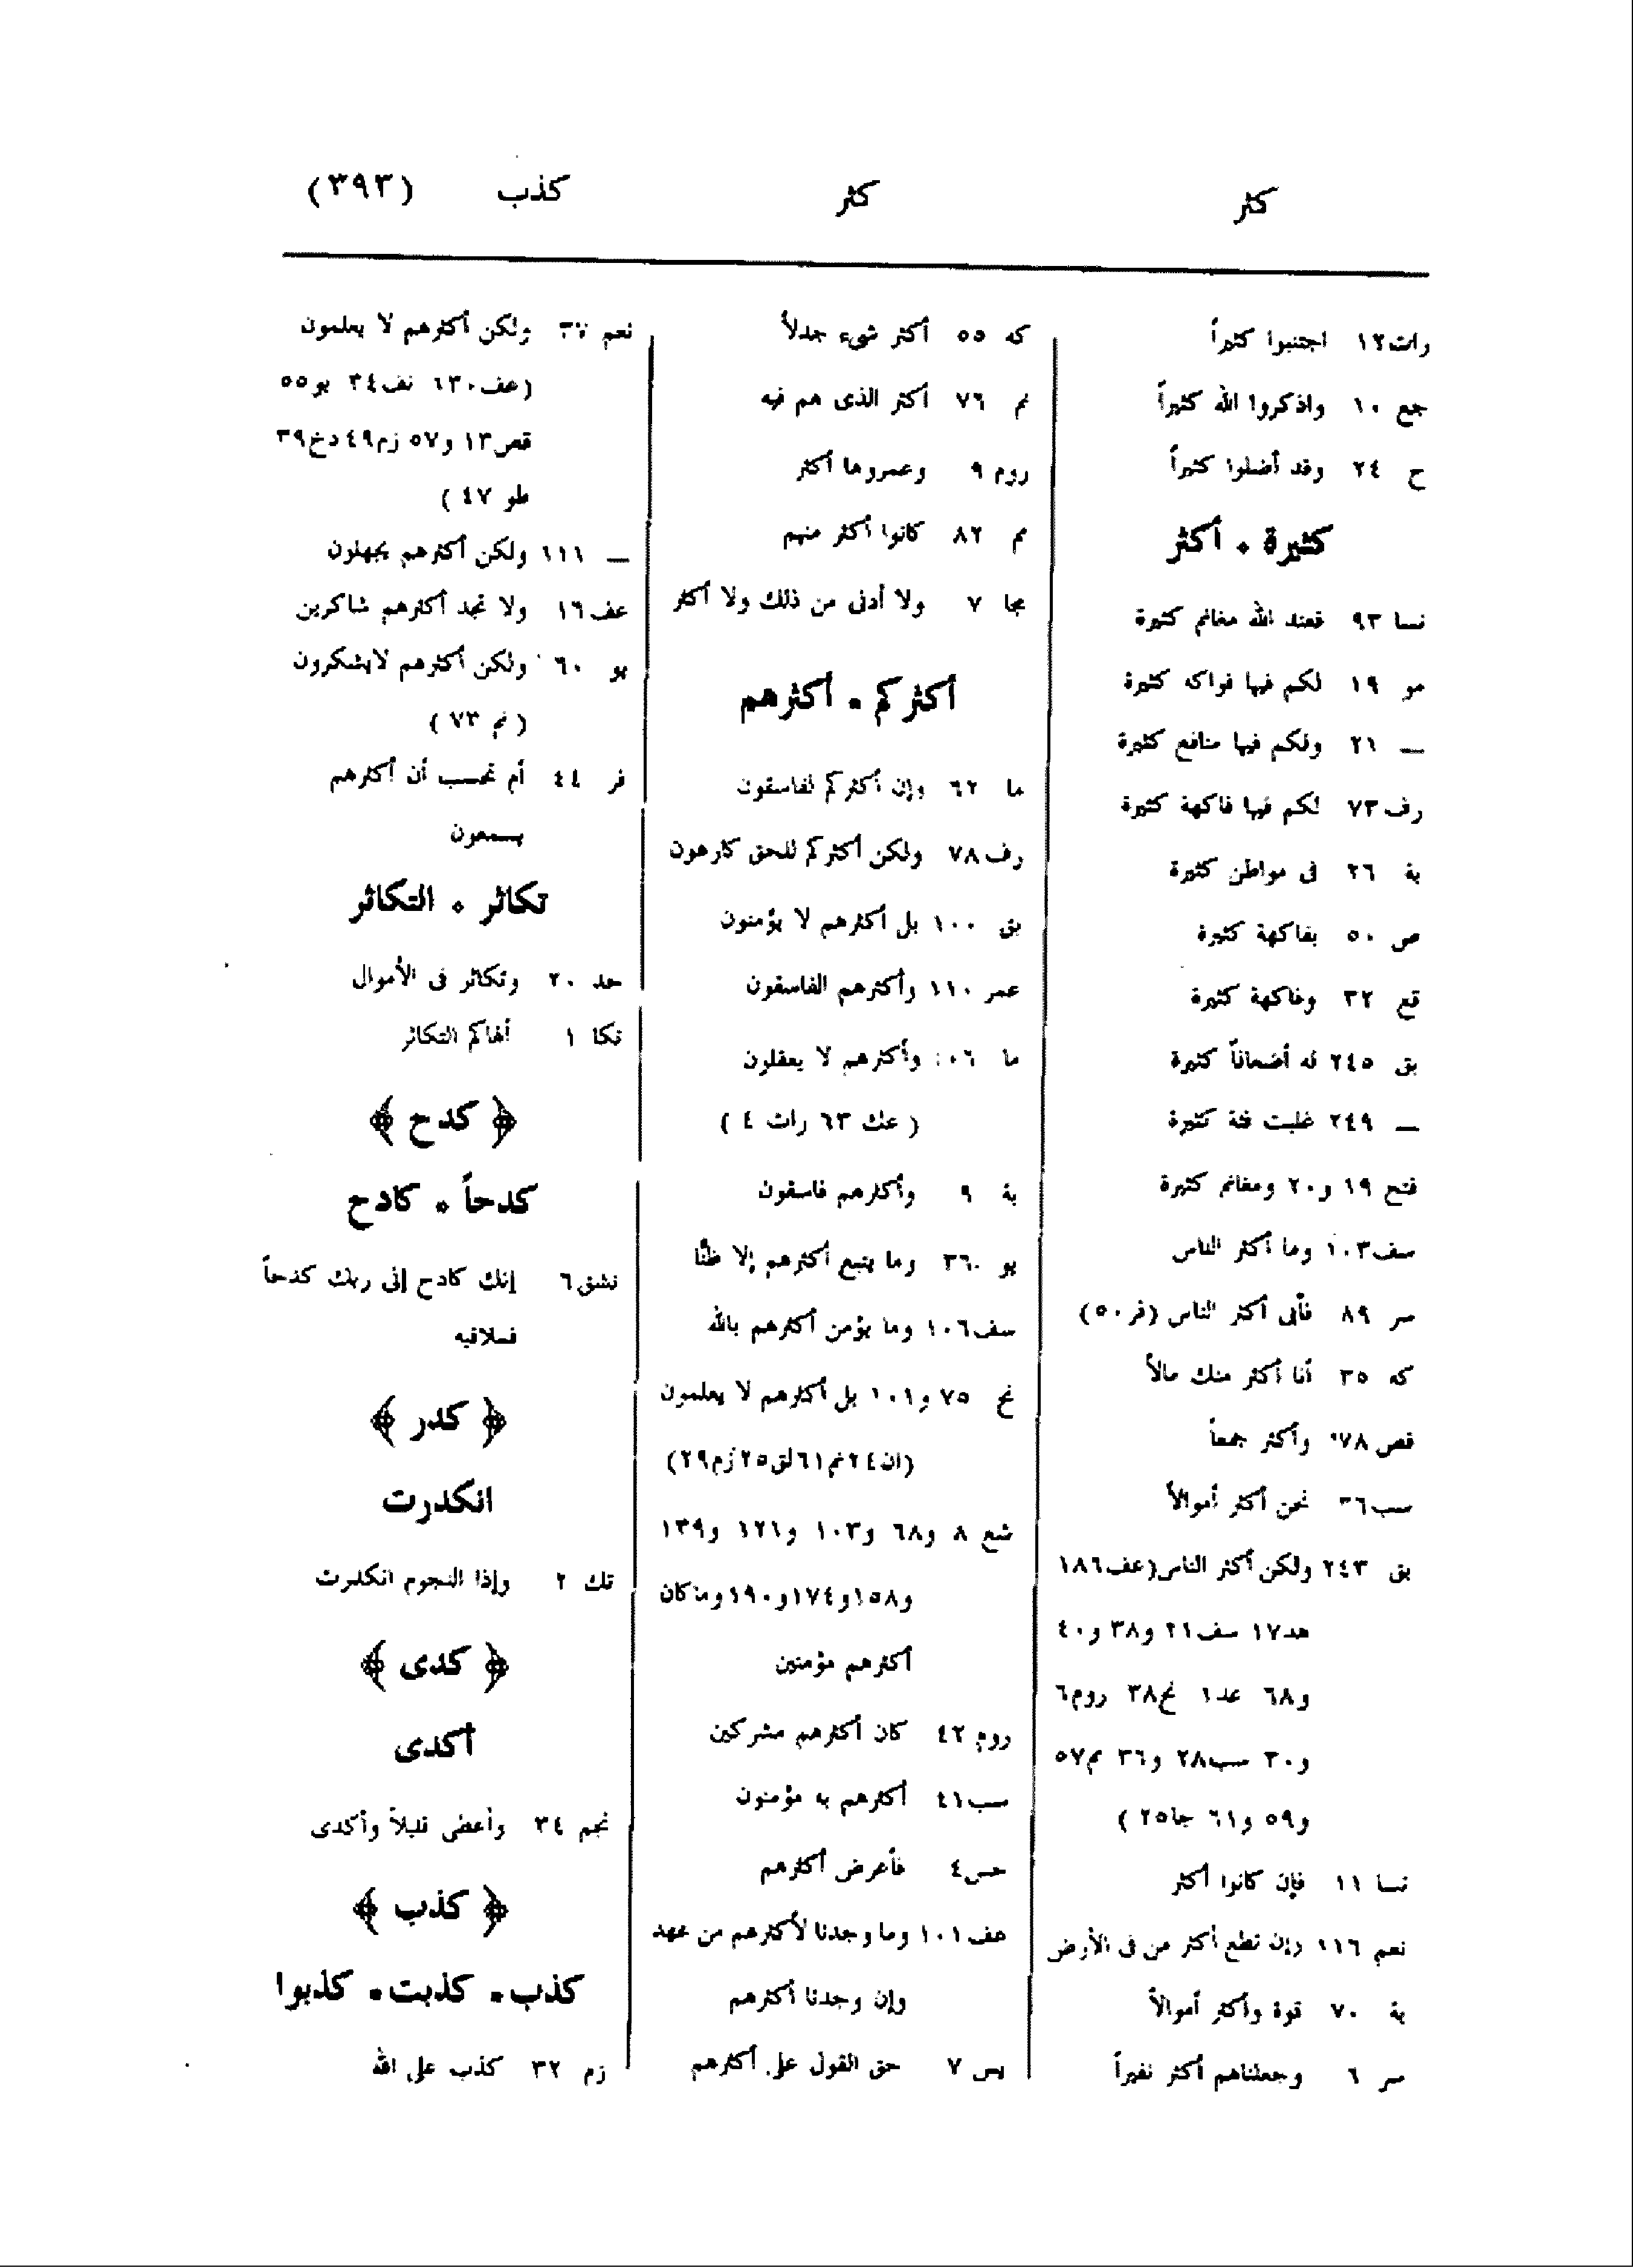 كثر
كثر
كذب
(٣٩٣)
رات١٢ اجتنبوا كثيراً
جع ١٠ واذكروا الله كثيراً
ح ٢٤ وقد أضلوا كثيراً
كثيرة ٠ أكثر
نسا ٩٣ فعند الله مغانم كثيرة
مو ١٩ لكم فيها فواكه كثيرة
— ٢١ ولكم فيها منافع كثيرة
رف٧٣ لكم فيها فاكهة كثيرة
بة ٢٦ فى مواطن كثيرة
ص ٥٠ بفاكهة كثيرة
قع ٣٢ وفاكهة كثيرة
بق ٢٤٥ له أضعافاً كثيرة
— ٢٤٩ غلبت فئة كثيرة
فتح ١٩ و٢٠ ومغانم كثيرة
سف١٠٣ وما أكثر الناس
سر ٨٩ فأبى أكثر الناس (فر٥٠)
كه ٣٥ أنا أكثر منك مالاً
قص٧٨ وأكثر جمعاً
سب٣٦ نحن أكثر أموالاً
بق ٢٤٣ ولكن أكثر الناس(عف١٨٦
هد١٧ سف٢١ و٣٨ و٤٠
و٦٨ عد١ نح٣٨ روم٦
و٣٠ سب٢٨ و٣٦ مم٥٧
و٥٩ و٦١ جا٢٥ )
نسا ١١ فإن كانوا أكثر
نعم ١١٦ وإن تطع أكثر من فى الأرض
بة ٧٠ قوة وأكثر أموالاً
سر ٦ وجعلناهم أكثر نفيراً
كه ٥٥ أكثر شىء جدلاً
نم ٧٦ أكثر الذى هم فيه
روم ٩ وعمروها أكثر
مم ٨٢ كانوا أكثر منهم
مجا ٧ ولا أدنى من ذلك ولا أكثر
أكثركم ٠ أكثرهم
ما ٦٢ وإن أكثركم لفاسقون
رف٧٨ ولكن أكثركم للحق كارهون
بق ١٠٠ بل أكثرهم لا يؤمنون
عمر ١١٠ وأكثرهم الفاسقون
ما ١٠٦ وأكثرهم لا يعقلون
( عك ٦٣ رات ٤ )
بة ٩ وأكثرهم فاسقون
يو ٣٦ وما يتبع أكثرهم إلا ظنًّا
سف١٠٦ وما يؤمن أكثرهم بالله
نح ٧٥ و١٠١ بل أكثرهم لا يعلمون
(ان٢٤نم٦١لق٢٥زم٢٩)
شع ٨ و٦٨ و١٠٣ و١٢١ و١٣٩
و١٥٨و١٧٤و١٩٠وماكان
أكثرهم مؤمنين
روم ٤٢ كان أكثرهم مشركين
سب٤١ أكثرهم به مؤمنون
حس٤ فأعرض أكثرهم
عف١٠١ وما وجدنا لأكثرهم من عهد
وإن وجدنا أكثرهم
يس ٧ حق القول على أكثرهم
نعم ٣٧ ولكن أكثرهم لا يعلمون
(عف١٣٠ نف٣٤ يو٥٥
قص١٣ و٥٧ زم٤٩دخ٣٩
طو ٤٧ )
— ١١١ ولكن أكثرهم يجهلون
عف١٦ ولا تجد أكثرهم شاكرين
يو ٦٠ ولكن أكثرهم لايشكرون
( نم ٧٣ )
فر ٤٤ أم تحسب أن أكثرهم
يسمعون
تكاثر ٠ التكاثر
حد ٢٠ وتكاثر فى الأموال
تكا ١ ألهاكم التكاثر
﴿ كدح ﴾
كدحاً ٠ كادح
نشق٦ إنك كادح إلى ربك كدحاً
فملاقيه
﴿ كدر ﴾
انكدرت
تك ٢ وإذا النجوم انكدرت
﴿ كدى ﴾
أكدى
نجم ٣٤ وأعطى قليلاً وأكدى
﴿ كذب ﴾
كذب٠ كذبت٠ كذبوا
زم ٣٢ كذب على الله